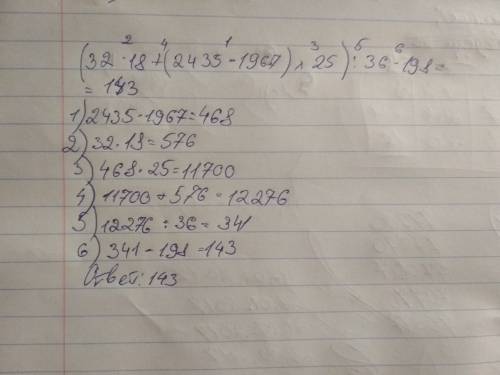 (32 · 18 + (2435 - 1967) · 25) : 36 - 198 =
= 143
1) 2435 - 1967 = 468
2) 32 · 18 = 576
3) 468 · 25 = 11700
4) 11700 + 576 = 12276
5) 12276 : 36 = 341
6) 341 - 198 = 143
Ответ: 143